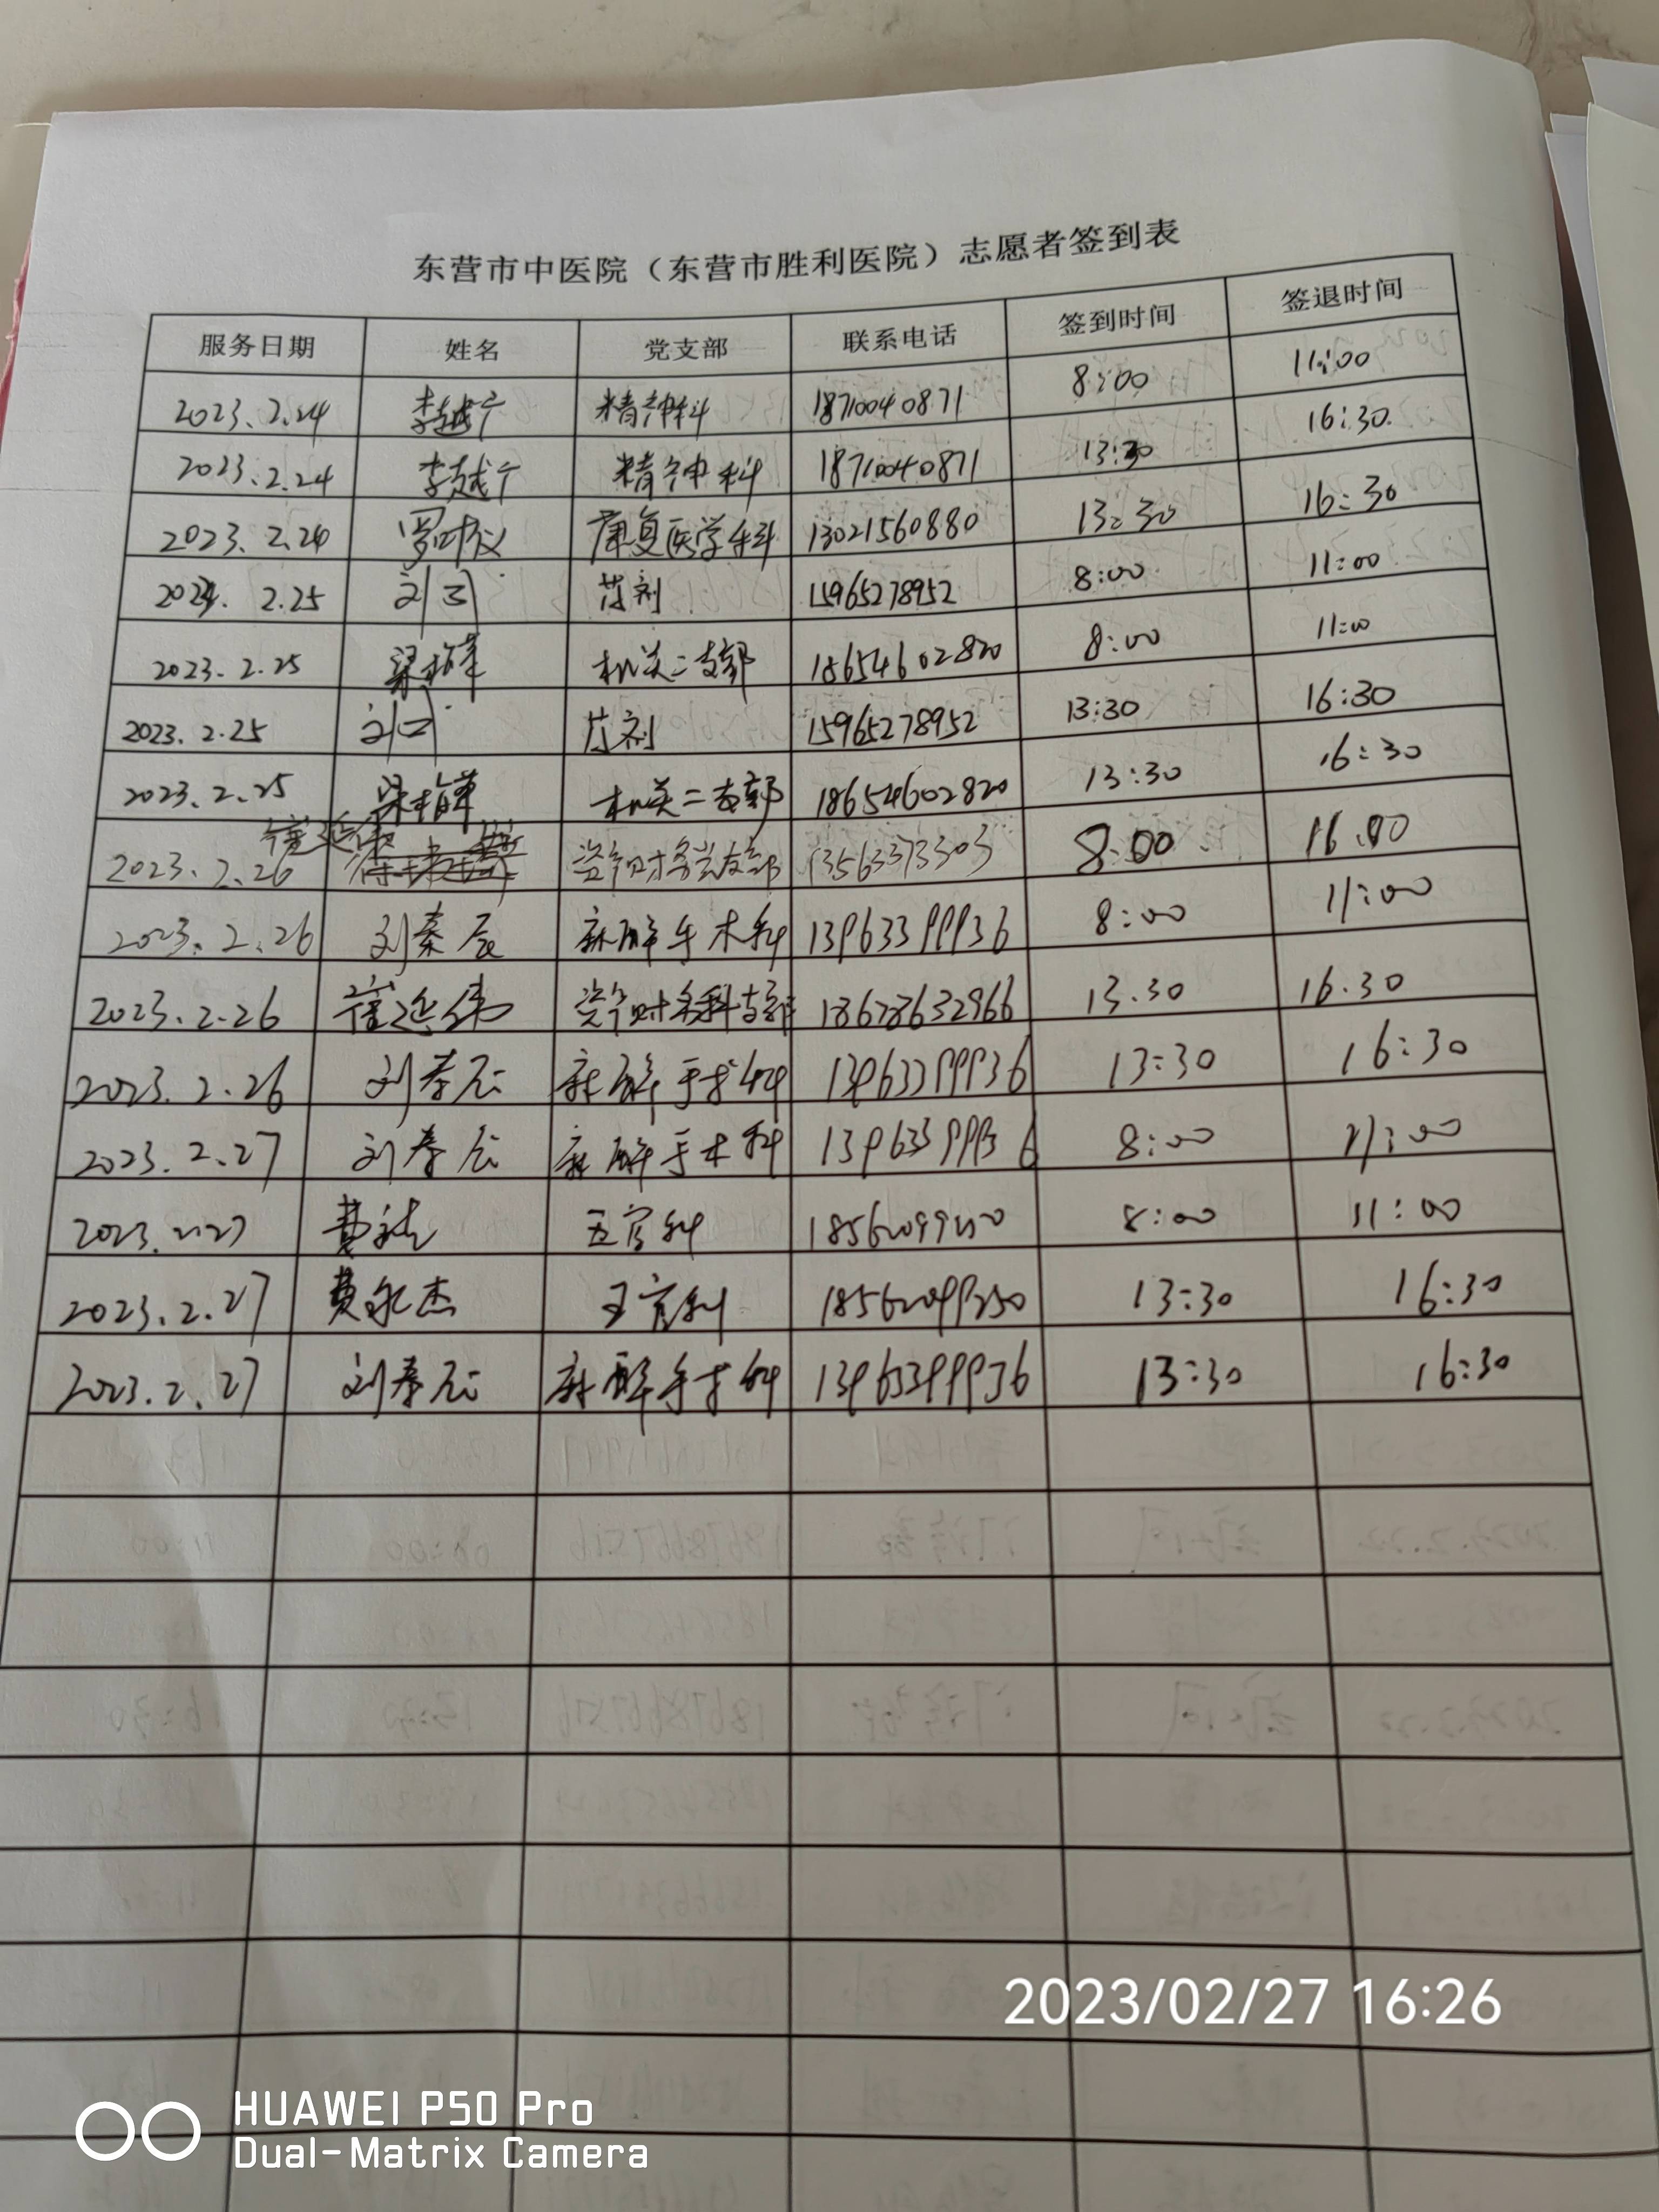 东营市中医院（东营市胜利医院）志愿者签到表
服务日期 姓名 党支部 联系电话 签到时间 签退时间
2023.2.24 李越宁 精神科 18710040871 8:00 11:00
2023.2.24 李越宁 精神科 18710040871 13:30 16:30.
2023.2.24 罗 康复医学科 13021560880 13:30 16:30
2.25 刘 药剂 15965278952 8:00 11:00
2023.2.25 梁 机关二支部 18654602820 8:00 11:00
2023.2.25 刘 药剂 15965278952 13:30 16:30
2023.2.25 梁 机关二支部 18654602820 13:30 16:30
2023.2.26 崔延伟 13563373303 8:00 16.00
2023.2.26 刘泰辰 麻醉手术科 13963399936 8:00 11:00
2023.2.26 崔延伟 18678632966 13.30 16.30
2023.2.26 刘泰辰 麻醉手术科 13963399936 13:30 16:30
2023.2.27 刘泰辰 麻醉手术科 13963399936 8:00 11:00
2023.2.27 费 五官科 8:00 11:00
2023.2.27 费永杰 五官科 13:30 16:30
2023.2.27 刘泰辰 麻醉手术科 13963399936 13:30 16:30
2023/02/27 16:26
HUAWEI P50 Pro
Dual-Matrix Camera